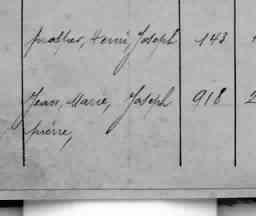 Mathieu, Henri, Joseph 143
Jean, Marie, Joseph 918 2
Pierre,